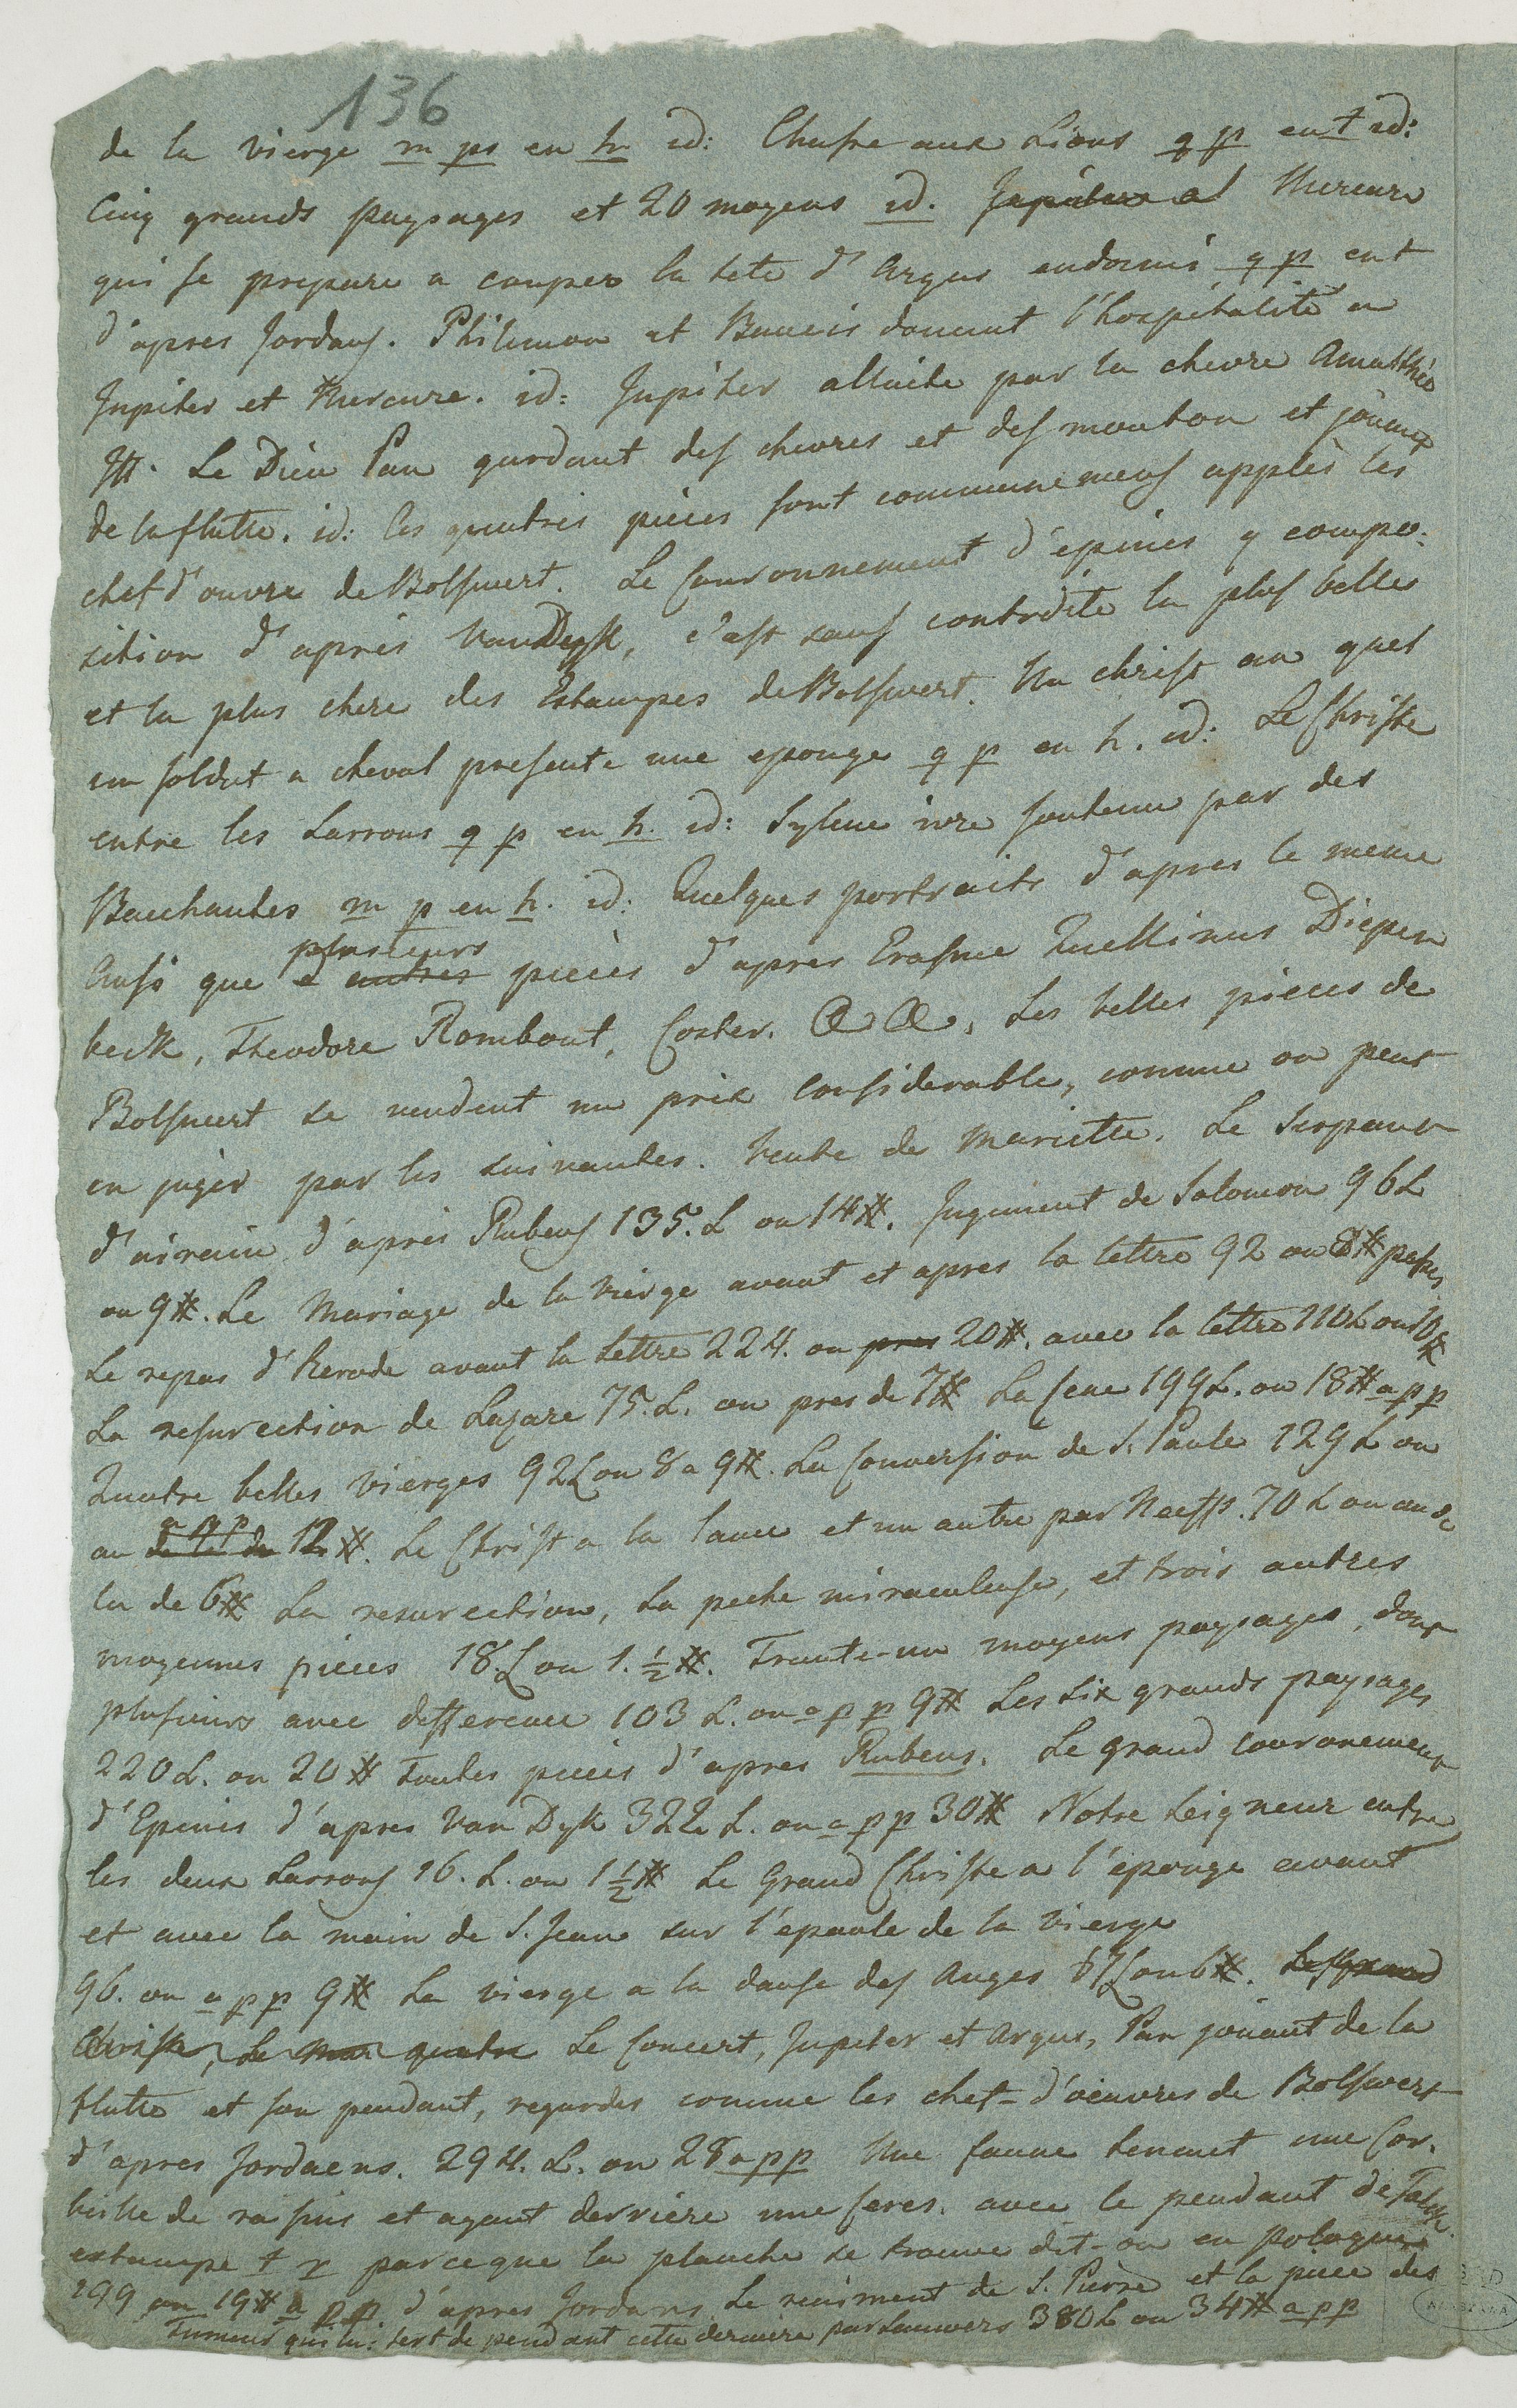 136
de la vierge m ps en h id: Chasse aux Lions g p en t id:
Cinq grands paysages et 20 moyens id. Jupiter et Mercure
qui se prepare a couper la tete d'Argus endormi g p en t
d'apres Jordans. Philemon et Baucis donnent l'hospitalité a
Jupiter et Mercure. id: Jupiter allaite par la chevre Amalthéo
Le Dieu Pan gardant des chevres et des mouton et jouans
de la flutte. id: les quatres pieces sont communemens appleè les
chef d'ouvre de Bolswert. Le Couronnement d'epines g compo:
sition d'apres VanDyk, c'est sans contrdite la plus belles
et la plus chere des Estampes de Bolswert. Un christ au quel
un soldat a cheval presente une eponge g p en h. id: Le Christe
entre les Larrons g p en h. id: Sylene ivre soutenu par des
Bacchantes m p en h. id: Quelques portraits d'apres le meme
plusieurs
Ansi que e autres pieces d'apres Erasme Quellinus Diepen
beck, Theodore Rombout, Coster. Les belles pieces de
Bolswert se vendent un prix considerable, comme on peut
en juger par les suivantes. Vente de Mariette. Le Serpent
d'airain d'apres Rubens 135. L ou 14#. Jugement de Salomon 96 L
ou 9#. Le Mariage de la Vierge avant et apres la lettre 92 ou 8#
Le repas d'Herode avant la Lettre 224. ou pres 20#. avec la lettre 110 L ou 10#
La resurection de Lazare 75. L. ou pres de 7# La Cene 199 L. ou 18# a p p
Quatre belles Vierges 92 L ou 8 a 9#. La Conversion de S. Paule 129 L ou
a p p
au de la de 12#. Le Christ a la lance et un autre par Neeffs. 70 L ou au de
la de 6# La resurection, La peche miraculeuse, et trois autres
moyennes pieces 18. L ou 1. ½ #. Trente-un moyens paysages, dont
plusieurs avec differences 103 L. ou a p p 9# Les six grands paysages
220 L. ou 20# toutes pieces d'apres Rubens. Le grand couronement
d'Epines d'apres Van Dyk 322 L. ou a p p 30# Notre Seigneur entre
les deux Larrons 16. L. ou 1 ½ # Le Grand Christe a l'éponge avant
et avec la main de S. Jean sur l'epaule de la Vierge
96. ou a p p 9# La vierge a la danse des Anges 67 L ou 6#. Le grand
Christ, Le quatre Le Concert, Jupiter et Argus, Pan joüant de la
flutte et son pendant, regardes comme les chef-d'oeuvres de Bolswert
d'apres Jordaens. 294. L. ou 28 a p p Une faune tenant une Cor.
beille de raisins et ayant derriere une ceres. avec le pendant
estampe t r parceque la planche se trouve dit-on en Pologne
299 ou 19# a p p d'apres Jordans Le reniment de S. Pierre et la piece des
Fumeurs qui lui sert de pendant cette derniere par Lauwers 380 L ou 34# a p p